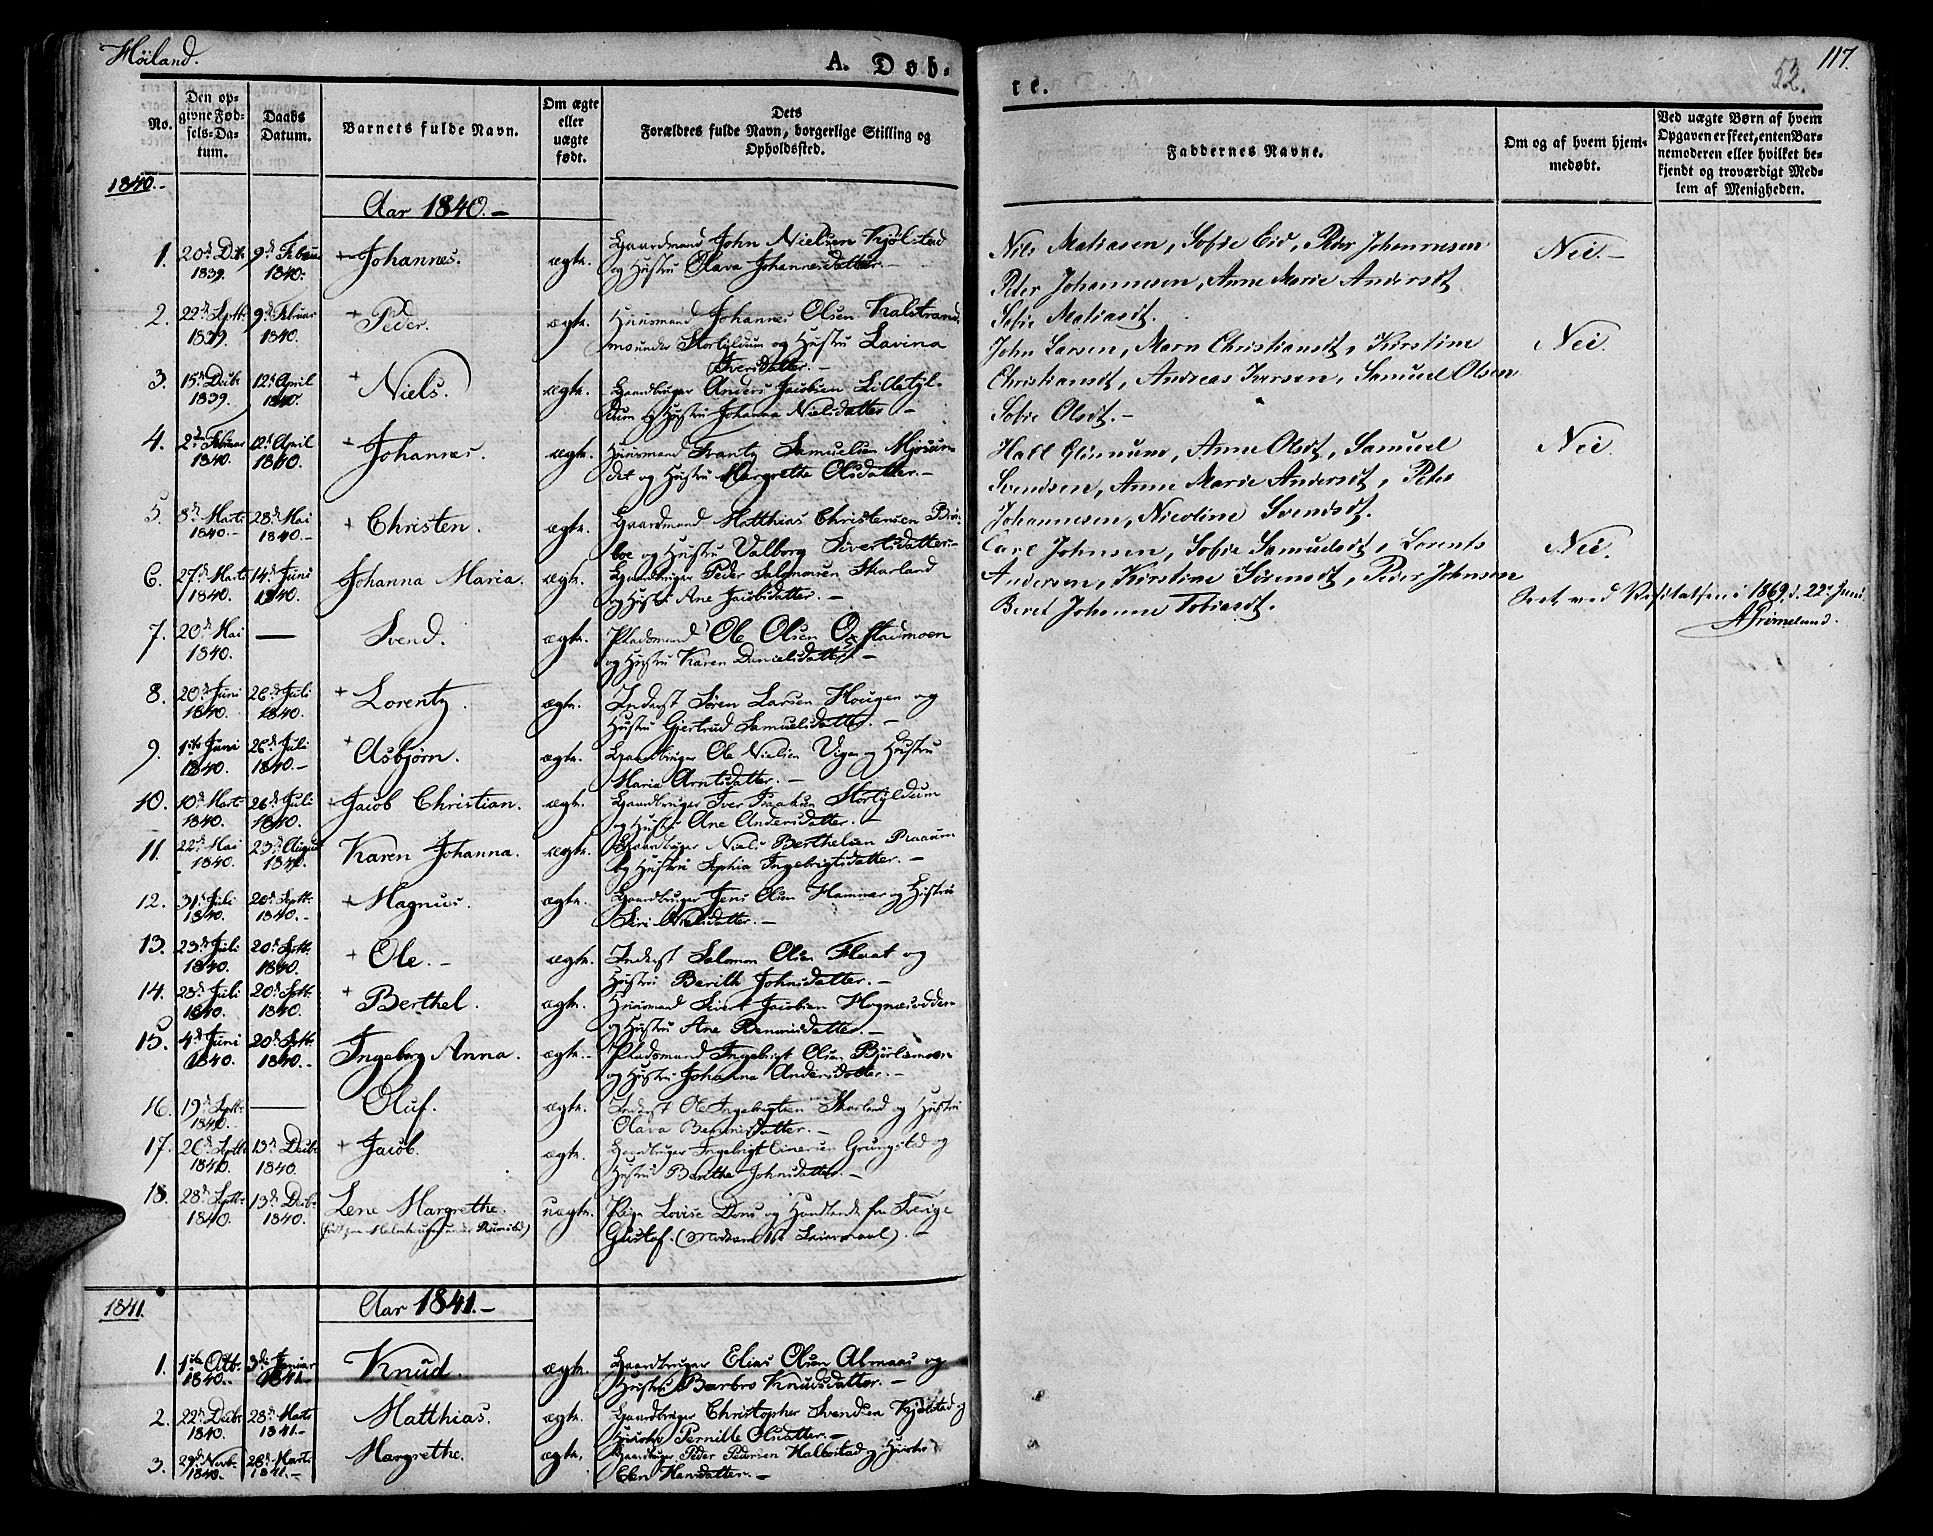 Höiland.
A. Døb-
te.
117.
52.
No.
Den op-
givne Fød-
sels-Da-
tum.
Daabs
Datum.
Barnets fulde Navn.
Om ægte
eller
uægte
født.
Dets
Forældres fulde Navn, borgerlige Stilling og
Opholdssted.
Faddernes Navne.
Om og af hvem hjem-
medøbt.
Ved uægte Børn af hvem
Opgaven er skeet, enten Bar-
nemoderen eller hvilket be-
kjendt og troværdigt Med-
lem af Menigheden.
1840.-
Aar 1840.-
1. 20de Dec. 9de Februar Johannes. ægte. Gaardmand John Nielsen Kjølstad
1839. 1840. og Hustru Olava Johannesdatter.-
2. 22de Septbr 9de Februar Peder. ægte. Huusmand Johannes Olsen Kalstrand
1839. 1840. under Stortyldum og Hustru Lavina
Iversdatter.-
3. 15de Decbr 12te April Niels. ægte. Gaardbruger Anders Jacobsen Lilletyl-
1839. 1840. dum og Hustru Johanna Nielsdatter.-
4. 2den Februar 12te April Johannes. ægte. Huusmand Frantz Samuelsen
1840. 1840. og Hustru Margrethe Olsdatter.-
5. 8de Marts 28de Mai Christen. ægte. Gaardmand Matthias Christensen
1840.- 1840.- og Hustru Valborg Sivertsdatter.-
6. 27de Marts 14de Juni Johanna Maria. ægte. Gaardbruger Peder Salomonsen Skarland
1840. 1840. og Hustru Ane Jacobsdatter.-
7. 20de Mai — Svend. ægte. Pladsmand Ole Olsen
1840. og Hustru Karen Danielsdatter.-
8. 20de Juni 26de Juli Lorentz. ægte. Inderst Søren Larsen Hougen og
1840. 1840. Hustru Gjertrud Samuelsdatter.-
9. 1ste Juni 26de Juli Asbjørn. ægte. Gaardbruger Ole Nielsen og Hustru
1840. 1840.- Maria Arntsdatter.-
10. 10de Marts 26de Juli Jacob Christian. ægte. Gaardbruger Iver Stortyldum
1840. 1840. og Hustru Ane Andersdatter.-
11. 22de Mai 23de August Karen Johanna. ægte. Gaardbruger Niels Berthelsen
1840. 1840. og Hustru Sophia Ingebrigtsdatter.-
12. 31te Juli 20de Septbr Magnus. ægte. Gaardbruger Jens Olsen Hammer og Hustru
1840. 1840.- Siri Nielsdatter.-
13. 23de Juli 20de Septbr Ole.- ægte. Inderst Salomon Olsen Flaat og
1840. 1840. Hustru Berith Johnsdatter.-
14. 28de Juli 20de Septbr Berthel. ægte. Huusmand Sivert Jacobsen
1840. 1840. og Hustru Ane
15. 4de Juni 20de Septbr Ingeborg Anna. ægte.- Pladsmand Ingebrigt Olsen
1840. 1840.- og Hustru Johanna Andersdatter.-
16. 19de Septbr — Oluf. ægte. Inderst Ole Ingebrigtsen Skarland og Hustru
1840. Olava
17. 26de Septbr 13de Decbr Jacob. ægte. Gaardbruger Ingebrigt Einersen Grungstad og
1840. 1840. Hustru Berithe Johnsdatter.-
18. 28de Septbr 13de Decbr Lene Margrethe. uægte. Pige Lovise og fra Sverige
1840. 1840. Gustaf. (Moderens 1st Leiermaal).-
1841.
Aar 1841.-
1. 1ste Octbr. 3de Januar Knud. ægte. Gaardbruger Elias Olsen Almaas og
1840.- 1841.- Hustru Barbro Knudsdatter.-
2. 22de Decbr 28de Marts Matthias. ægte. Gaardbruger Christopher Svendsen Kjølstad og
1840. 1841.- Hustru Pernille Olsdatter.-
3. 29de Novbr. 28de Marts Margrethe. ægte. Gaardbruger Peder Pedersen og Hustru
1840. 1841.- Elen Hansdatter.-
Nils Matiasen, Sofie Eid, Peder Johannesen Nei.-
Peder Johannesen, Anne Marie Andersdt
Sofie Matiasdt.
John Larsen, Maren Christiansdt, Kirstine Nei.
Christiansdt, Andreas Iversen, Samuel Olsen
Sofie Olsdt.-
Anne Olsdt, Samuel Nei.
Svendsen, Anne Marie Andersdt, Peter
Johannesen, Nicoline Svendsdt.
Carl Johnsen, Sofie Samuelsdt, Lorents Nei.
Andersen, Kirstine Sørensdt, Peder Johnsen
Beret Johanne Tobiasdt.
Seet ved Visitatsen i 1869, d. 22de Juni.